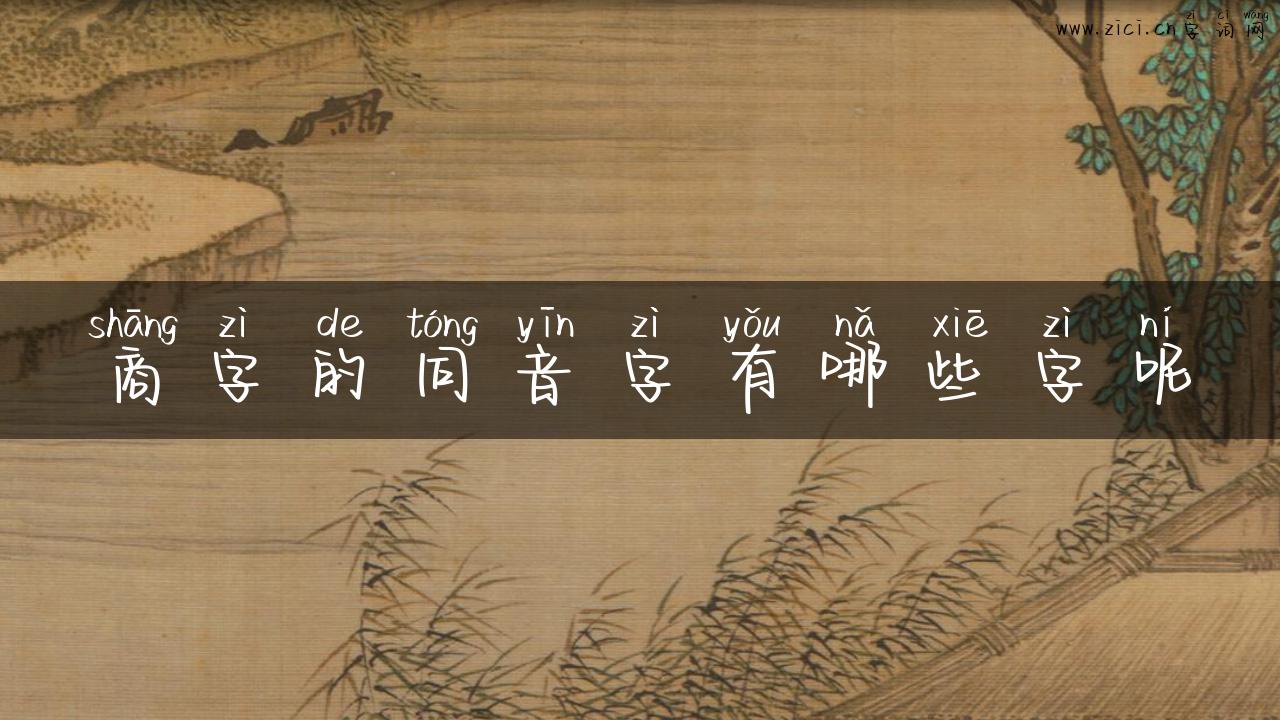 zì cí wǎng
www.zici.cn字词网
shāng zì de tóng yīn zì yǒu nǎ xiē zì ní
商字的同音字有哪些字呢